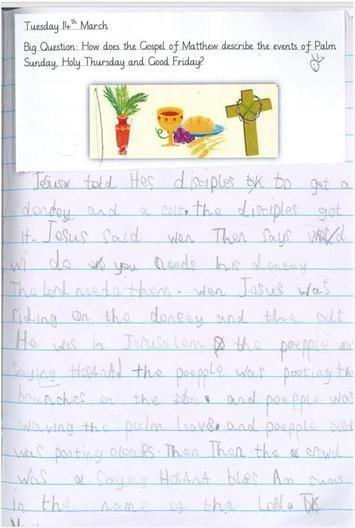 Tuesday 14th March
Big Question: How does the Gospel of Matthew describe the events of Palm
Sunday, Holy Thursday and Good Friday?
Jesus told Hes disciples to got a
donkey and a colt. the disciples got
it. Jesus said wen Then Says
wi do you needs his doncey
The lord neede them. wen Jesus was
riding on the doncey and the colt
He was in Jerusalem the poepple was
saying the poepple was pooting the
branches on the and poepple was
waiving the palm leavs. and poepple
was pooting cloaks. Then Then the crowd
was saying Hosant bles
in the name of the Lord